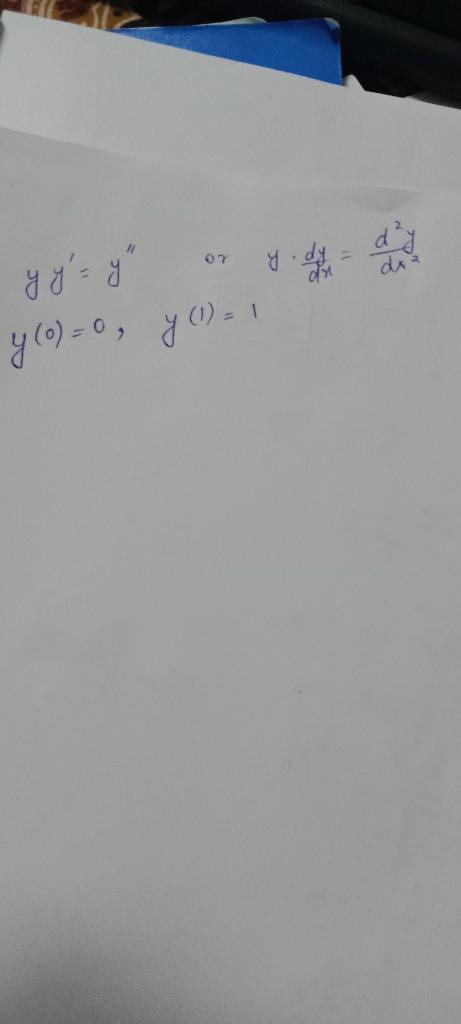 yy' = y'' or y · dy/dx = d²y/dx²
y(0) = 0, y(1) = 1